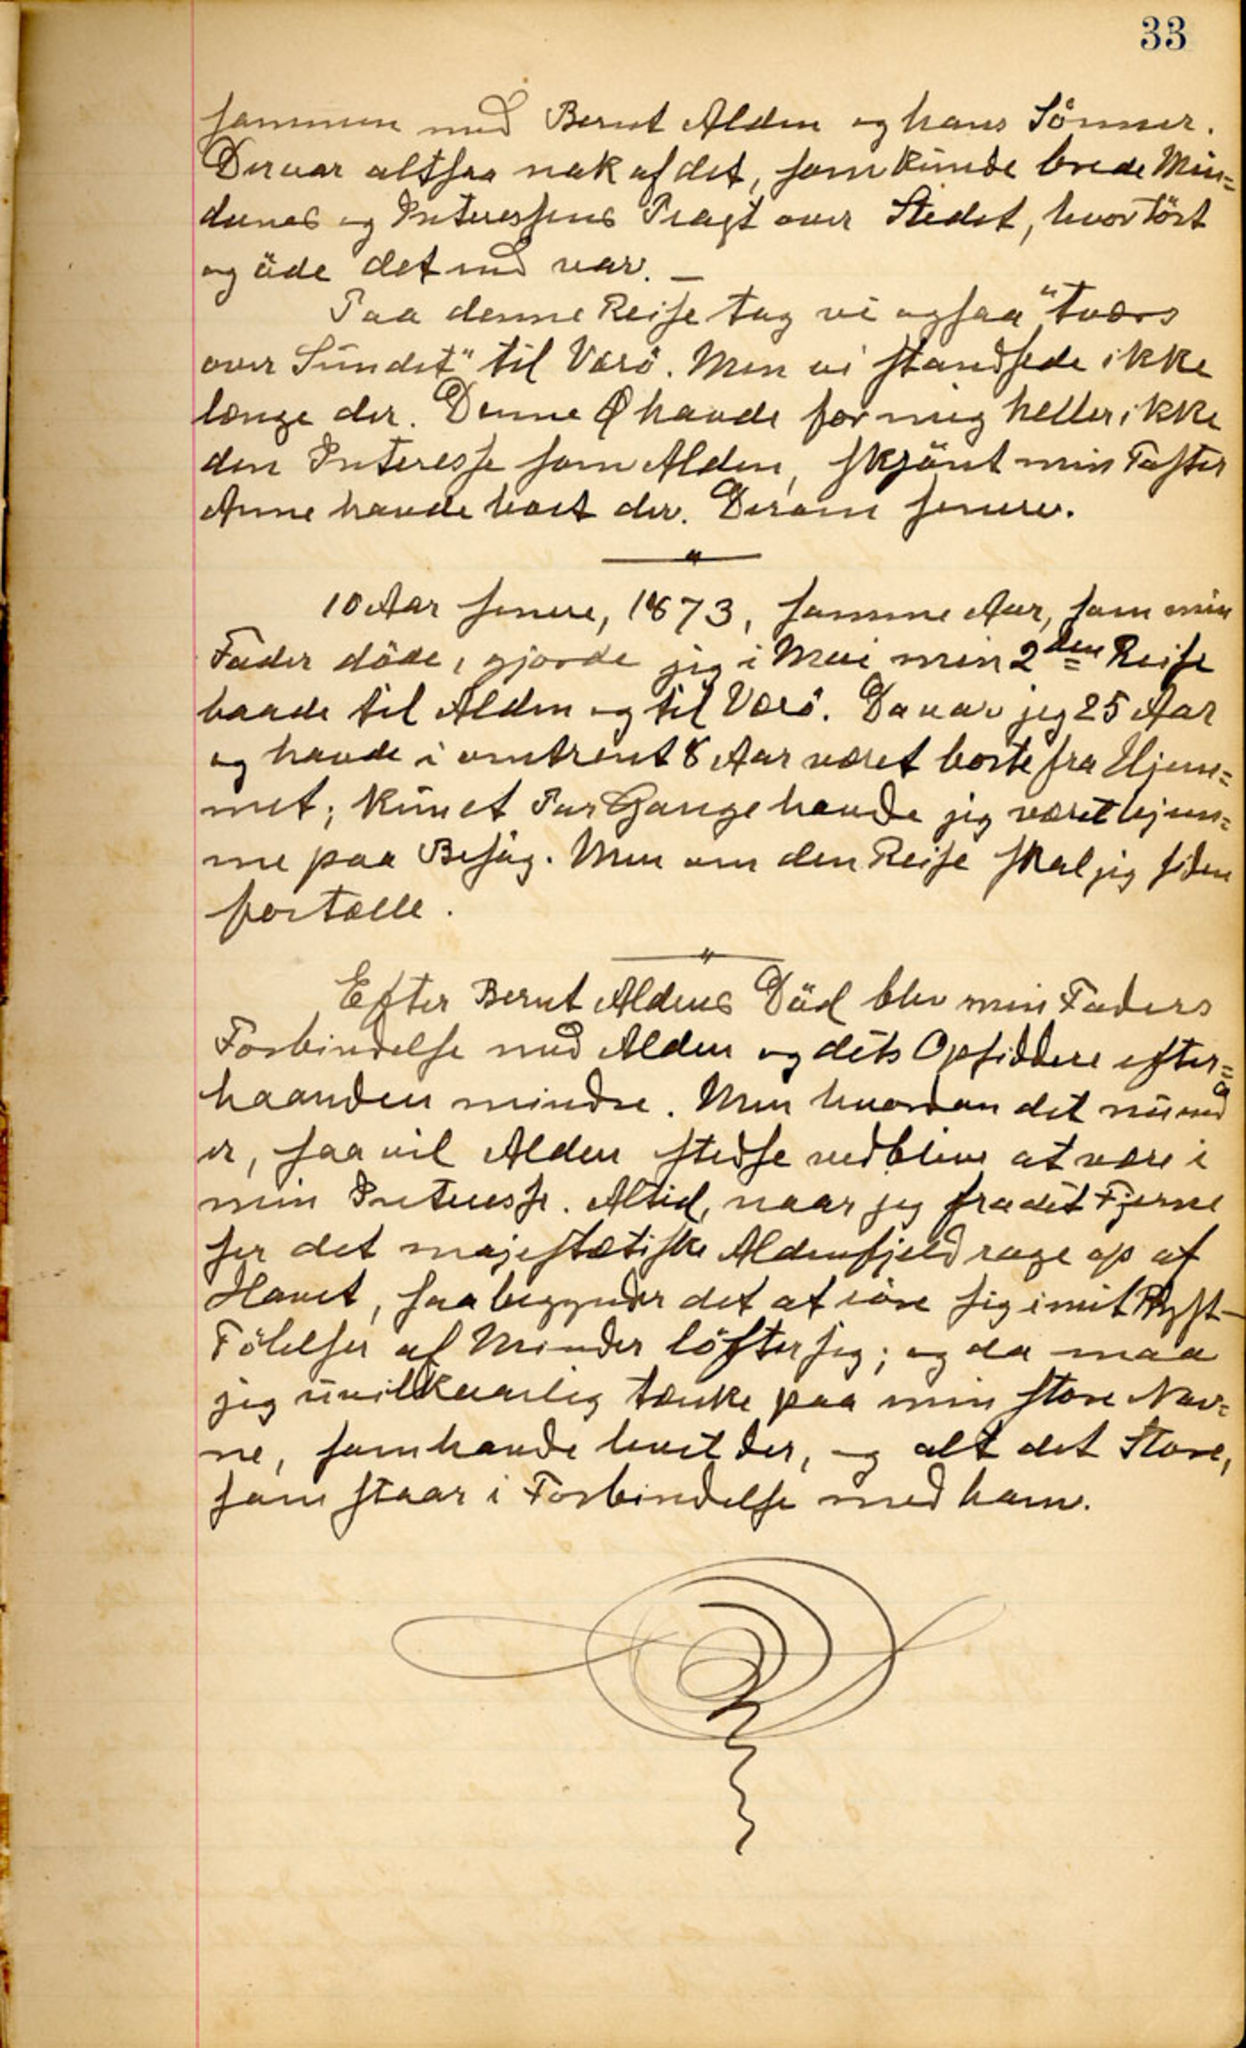 33
sammen med Bernt Alden og hans Sönner.
Der var altsaa nok af det, som kunde brede Min=
dernes og Interessens Pragt over Stedet, hvor tört
og öde det end var. —
Paa denne Reise tog vi ogsaa "tværs
over Sundet" til Værö. Men vi standsede ikke
længe der. Denne Ø havde for mig heller ikke
den Interesse som Alden, skjönt min Faster
Anne havde boet der. Derom senere.
10 Aar senere, 1873, samme Aar, som min
Fader döde, gjorde jeg i Mai min 2den Reise
baade til Alden og til Værö. Da var jeg 25 Aar
og havde i omtrent 8 Aar været borte fra Hjem=
met; kun et Par Gange havde jeg været hjem=
me paa Besög. Men om den Reise skal jeg siden
fortælle.
Efter Bernt Aldens Död blev min Faders
Forbindelse med Alden og dets Opsiddere efter=
haanden mindre. Men hvordan det nu end
er, saa vil Alden stedse vedblive at være i
min Interesse. Altid, naar jeg fra det Fjerne
ser det majestætiske Aldenfjeld rage op af
Havet, saa begynder det at röre sig i mit Bryst —
Fölelser af Minder löfter sig; og da maa
jeg uvilkaarlig tænke paa min store Nav=
ne, som havde levet der, og alt det Store,
som staar i Forbindelse med ham.